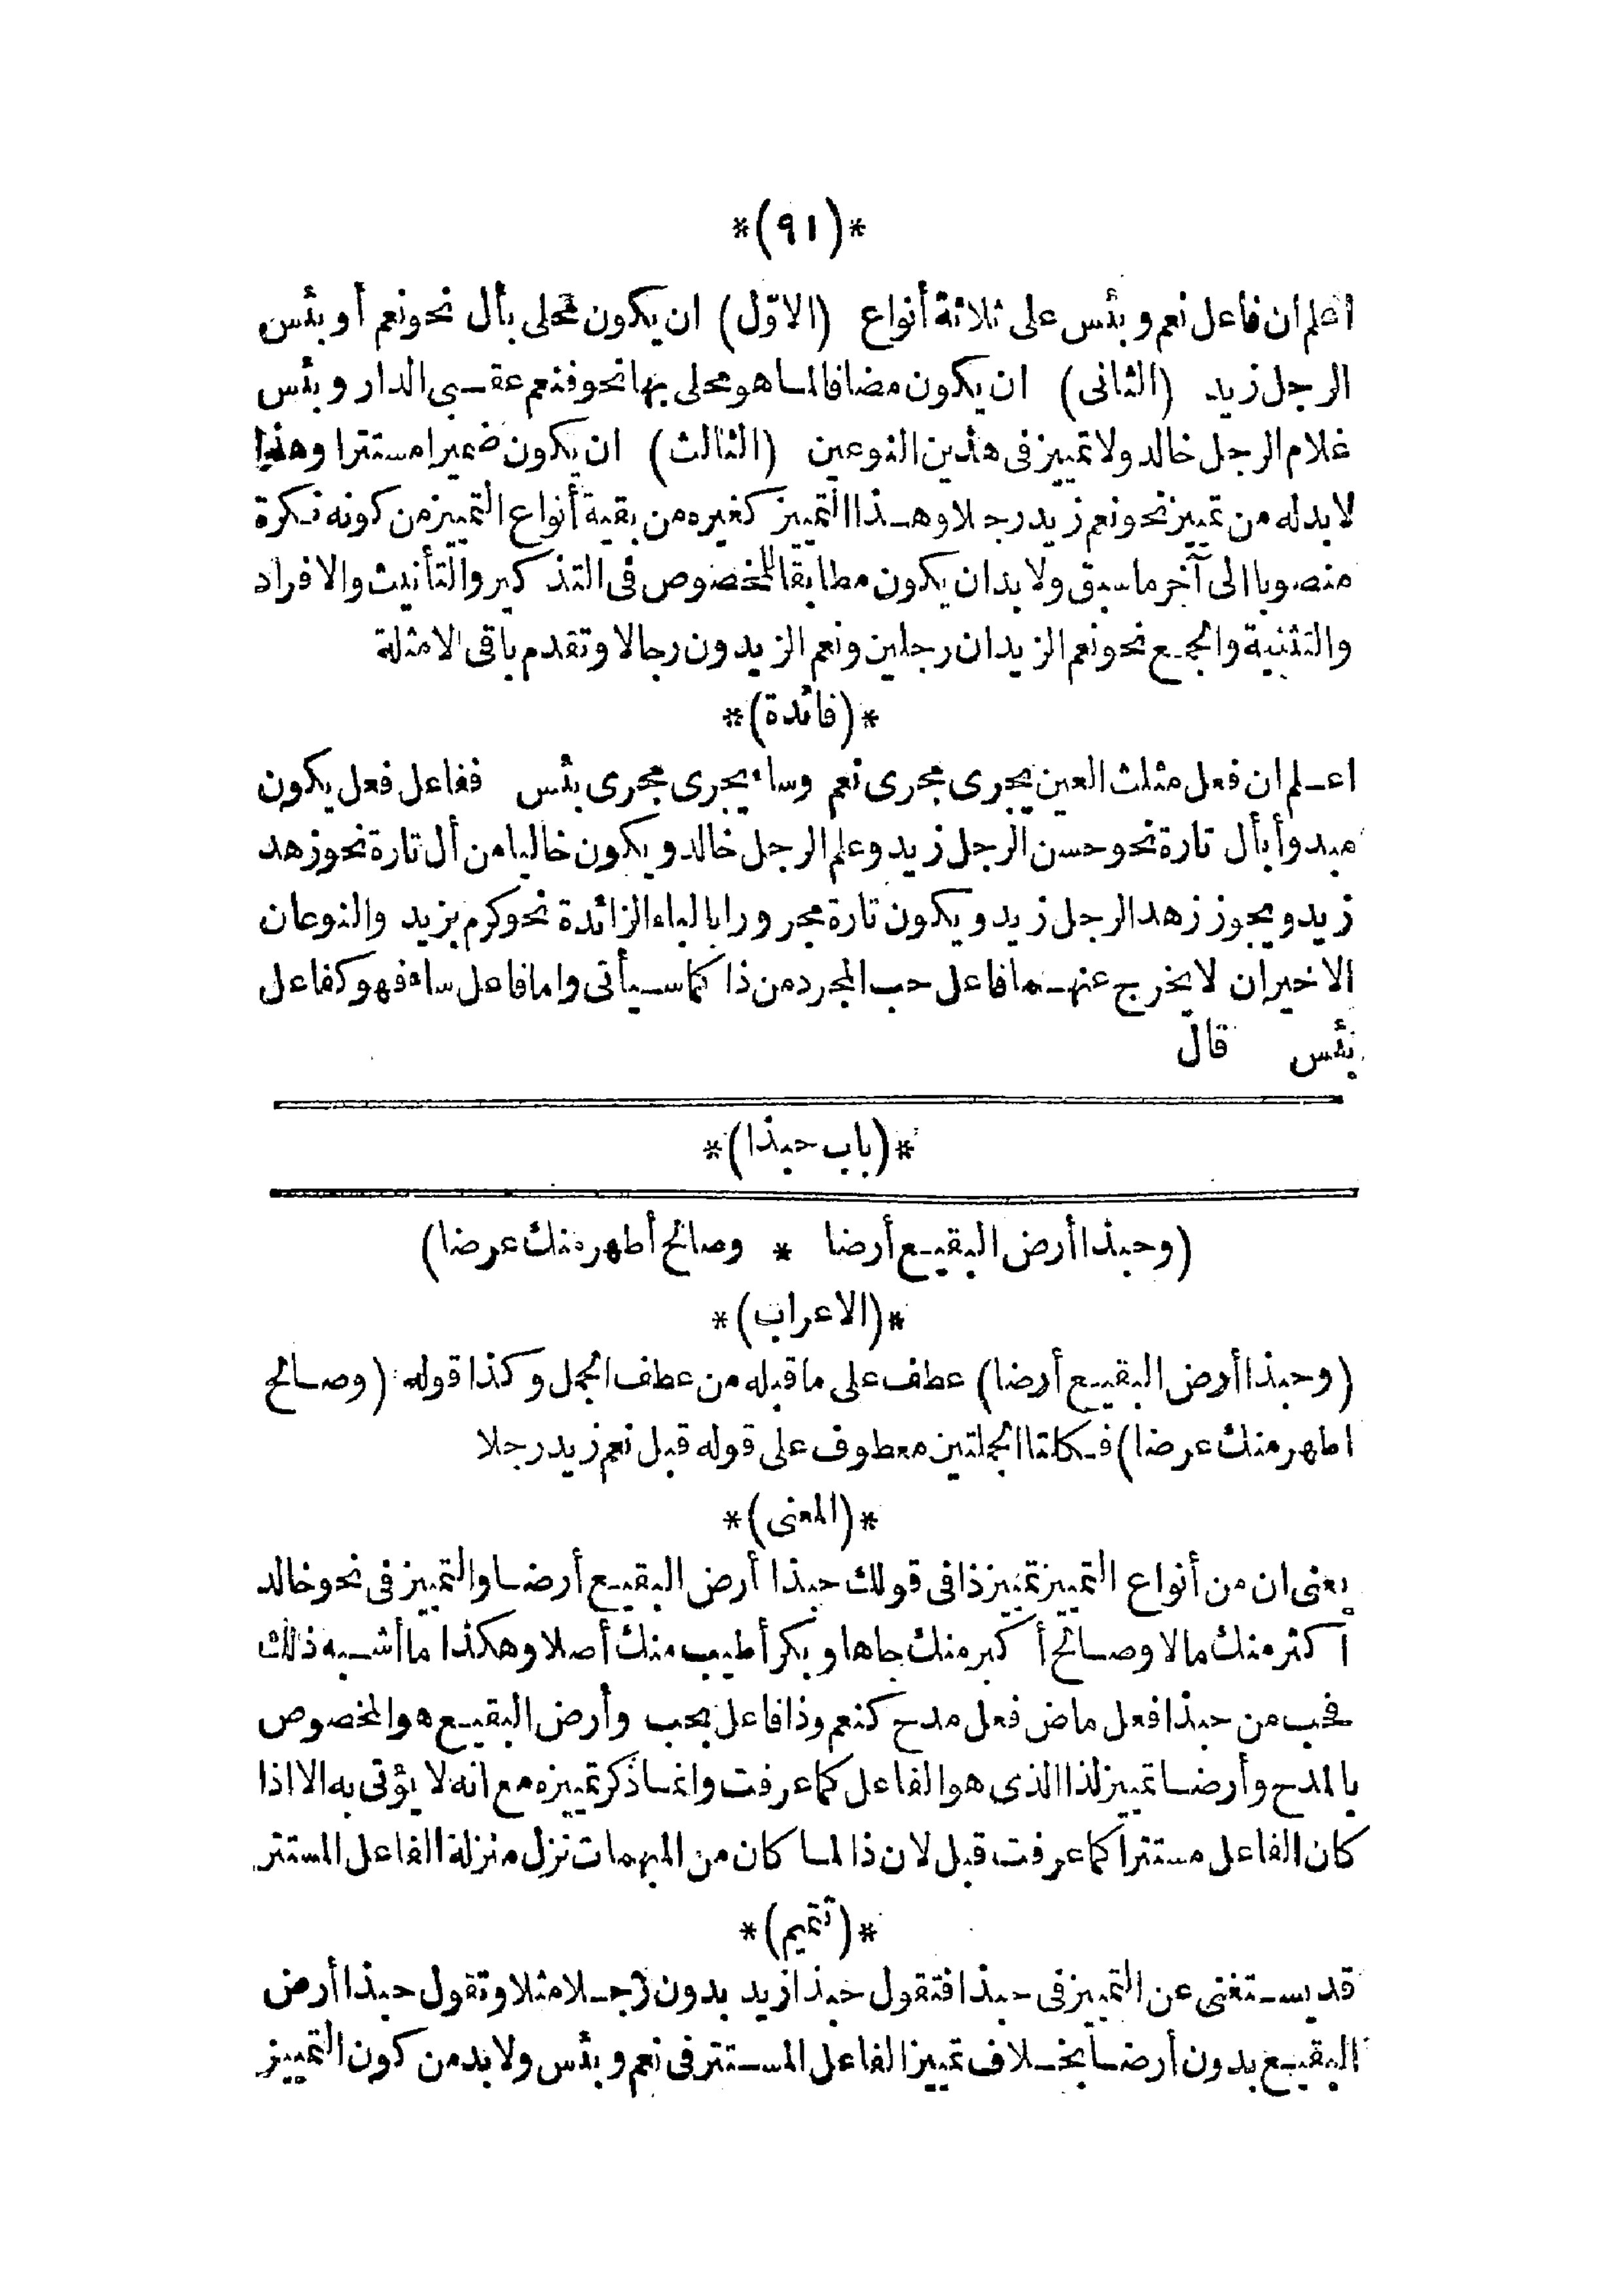 *(٩١)*
اعلم ان فاعل نعم وبئس على ثلاثة أنواع (الاوّل) ان يكون محلى بأل نحو نعم أو بئس
الرجل زيد (الثانى) ان يكون مضافا لما هو محلى بها نحو فنعم عقبى الدار وبئس
غلام الرجل خالد ولا تمييز فى هذين النوعين (الثالث) ان يكون ضميرا مستترا وهذا
لا بدله من تمييز نحو نعم زيد رجلا وهذا التمييز كغيره من بقية أنواع التمييز من كونه نكرة
منصوبا الى آخر ما سبق ولا بد ان يكون مطابقا للمخصوص فى التذكير والتأنيث والافراد
والتثنية والجمع نحو نعم الزيدان رجلين ونعم الزيدون رجالا وتقدم باقى الامثلة
*(فائدة)*
اعلم ان فعل مثلث العين يجرى مجرى نعم وساء يجرى مجرى بئس ففاعل فعل يكون
مبدوأ بأل تارة نحو حسن الرجل زيد وعلم الرجل خالد ويكون خاليا من أل تارة نحو زهد
زيد ويجوز زهد الرجل زيد ويكون تارة مجرورا بالباء الزائدة نحو كرم بزيد والنوعان
الاخيران لا يخرج عنهما فاعل حب المجرد من ذا كما سيأتى واما فاعل ساء فهو كفاعل
بئس قال
*(باب حبذا)*
(وحبذا أرض البقيع أرضا * وصالح أطهر منك عرضا)
*(الاعراب)*
(وحبذا أرض البقيع أرضا) عطف على ما قبله من عطف الجمل وكذا قوله (وصالح
اطهر منك عرضا) فكلتا الجملتين معطوف على قوله قبل نعم زيد رجلا
*(المعنى)*
يعنى ان من أنواع التمييز تمييز ذا فى قولك حبذا أرض البقيع أرضا والتمييز فى نحو خالد
أكثر منك مالا وصالح أكبر منك جاها وبكر أطيب منك أصلا وهكذا ما أشبه ذلك
فحب من حبذا فعل ماض فعل مدح كنعم وذا فاعل بحب وأرض البقيع هو المخصوص
بالمدح وأرضا تمييز لذا الذى هو الفاعل كما عرفت وانما ذكر تمييزه مع انه لا يؤتى به الا اذا
كان الفاعل مستترا كما عرفت قبل لان ذا لما كان من المبهمات نزل منزلة الفاعل المستتر
*(تتميم)*
قد يستغنى عن التمييز فى حبذا فتقول حبذا زيد بدون رجلا مثلا وتقول حبذا أرض
البقيع بدون أرضا بخلاف تمييز الفاعل المستتر فى نعم وبئس ولا بد من كون التمييز